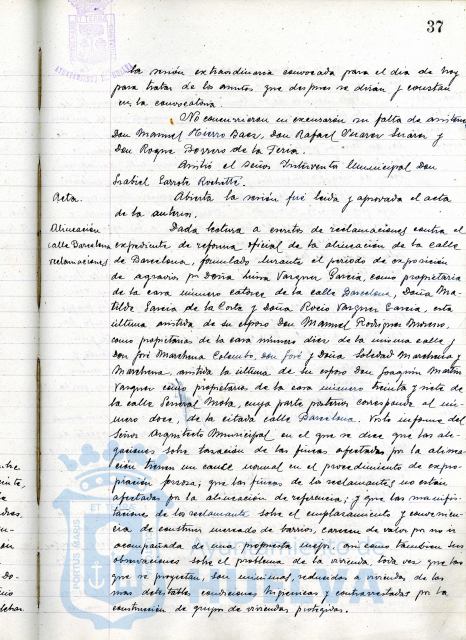 37
la sesión extraordinaria convocada para el dia de hoy
para tratar de los asuntos que despues se dirán y constan
en la convocatoria.
No concurrieron ni excusaron su falta de asistencia
Don Manuel Báez, Don Rafael Suarez Suarez y
Don Roque Borrero de la Feria.
Asistió el Señor Interventor Municipal Don
Garrote
Acta.
Abierta la sesión fué leida y aprobada el acta
de la anterior.
Alineación
calle Barcelona
reclamaciones
Dada lectura a escritos de reclamaciones contra el
expediente de reforma oficial de la alineación de la calle
de Barcelona, formulado durante el periodo de exposición
de agravios por Doña Luisa Vazquez Garcia, como propietaria
de la casa número catorce de la calle Barcelona, Doña Ma-
tilde Garcia de la Corte y Doña Rocio Vazquez Garcia, esta
última asistida de su esposo Don Manuel Rodriguez Moreno,
como propietarias de la casa número diez de la misma calle y
Don José Marchena Colombo, don José y Doña Soledad Marchena y
Marchena, asistida la última de su esposo Don Joaquin Martin
Vazquez como propietarios de la casa número treinta y siete de
la calle General Mola, cuya parte posterior corresponde al nú-
mero doce, de la citada calle Barcelona. Visto informe del
Señor Arquitecto Municipal en el que se dice que las ale-
gaciones sobre tasación de las fincas afectadas por la alinea-
ción tienen un cauce normal en el procedimiento de expro-
piación forzosa; que las fincas de los reclamantes no están
afectadas por la alineación de referencia; y que las manifes-
taciones de los reclamantes sobre el emplazamiento y convenien-
cia de construir mercado de barrios, carecen de valor por no ir
acompañada de una propuesta mejor, asi como tambien sus
observaciones sobre el problema de la vivienda, toda vez que las
que se proyectan, son minimas, reducidas a viviendas de las
mas detestables condiciones higienicas y contrarrestadas por la
construcción de grupos de viviendas protegidas.
Ayuntamiento de
HUELVA
PORTUS MARIS ET TERRAE